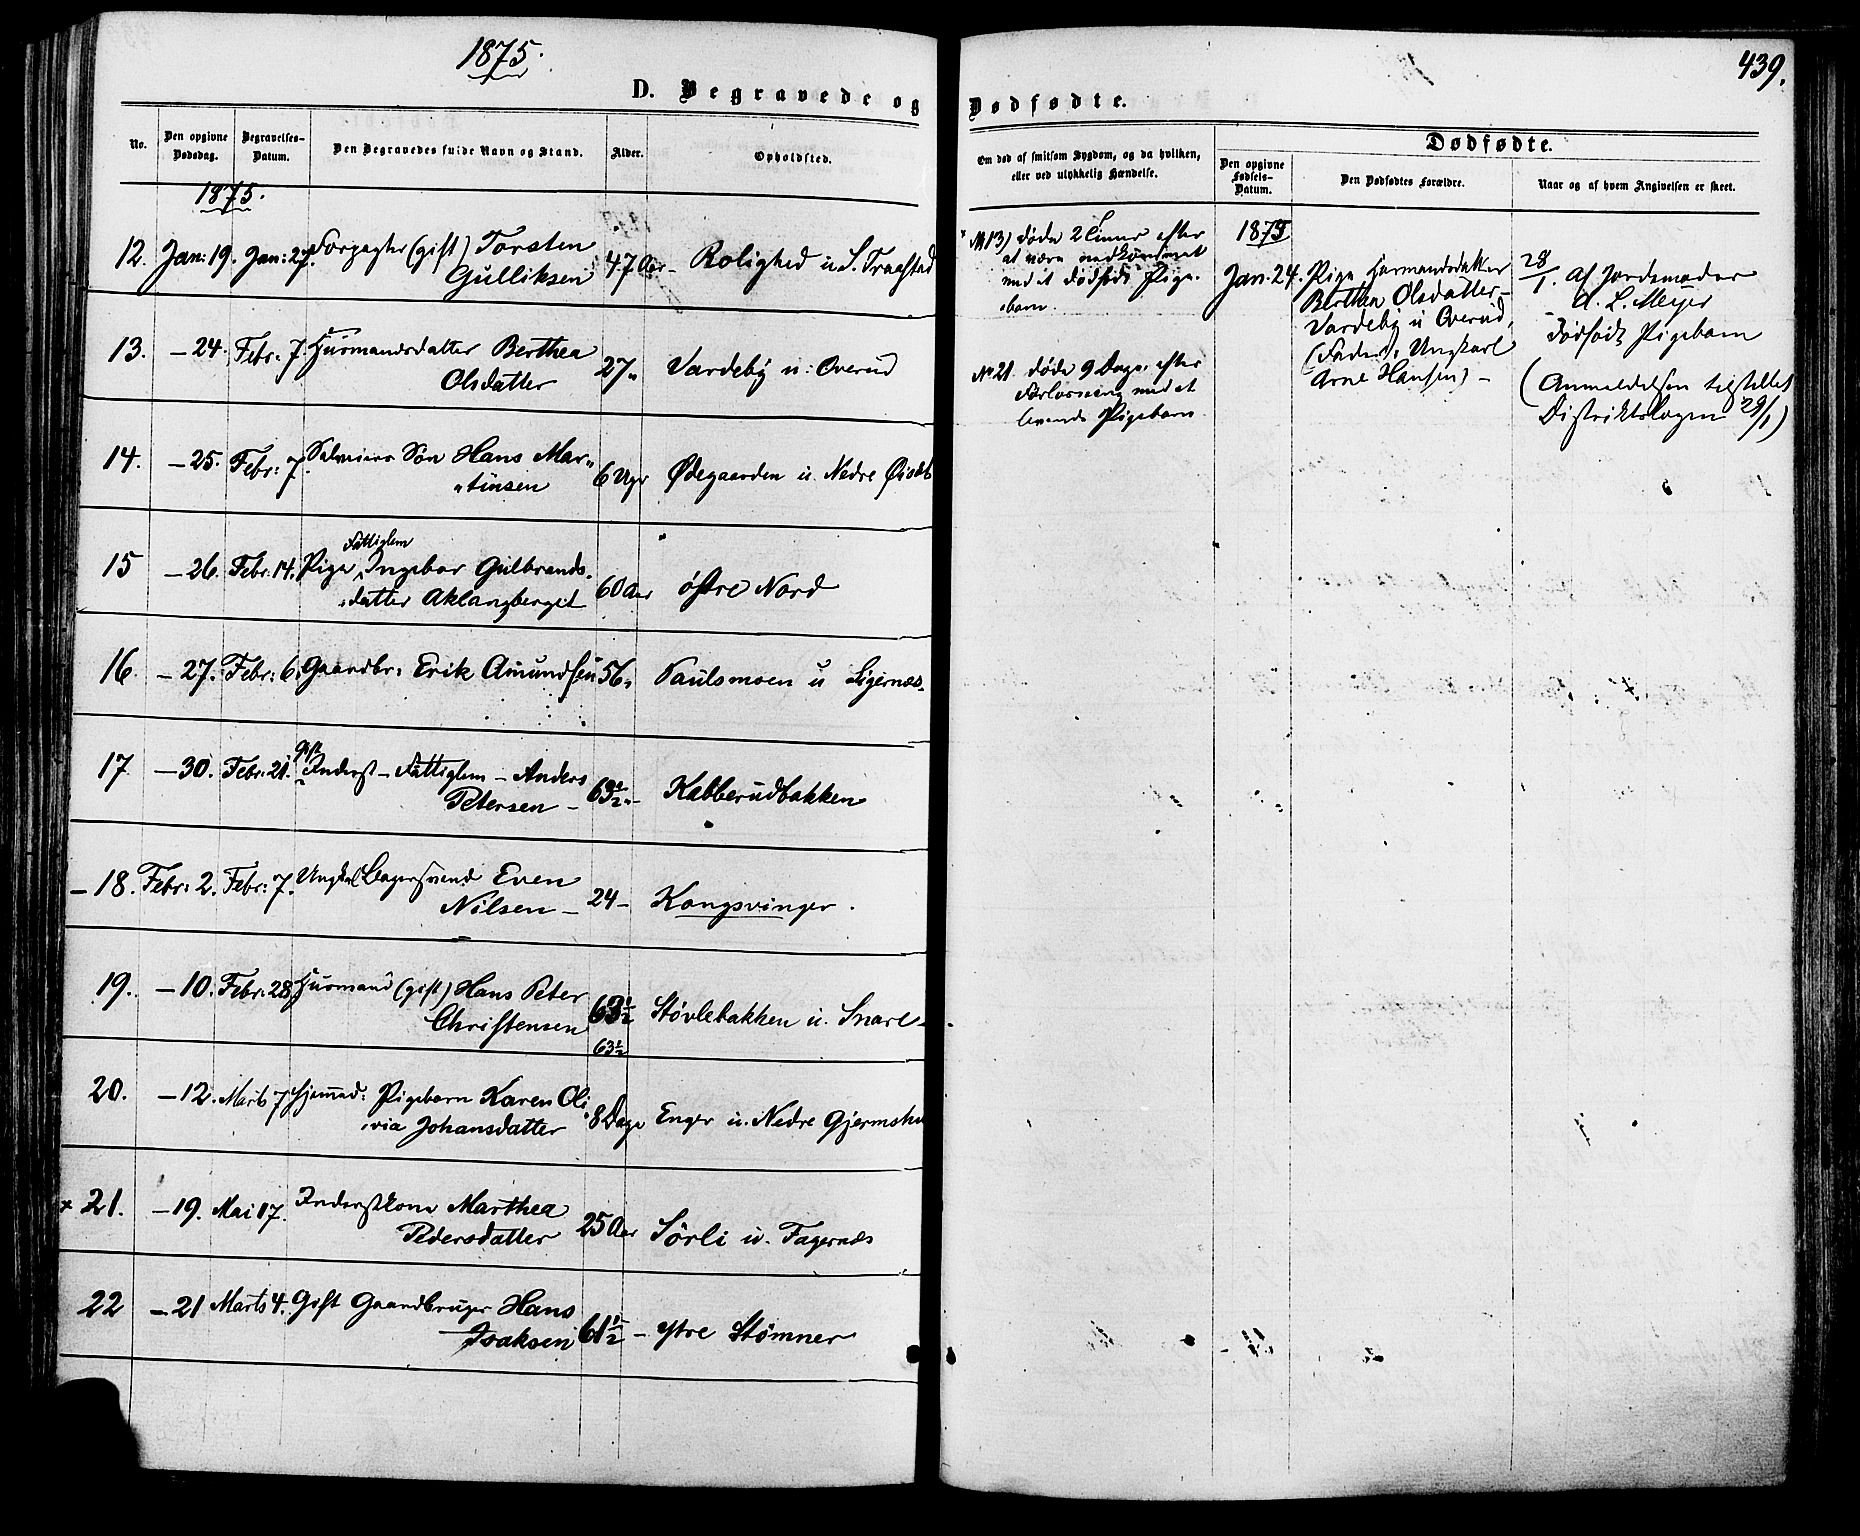 1875.
D. Begravede og
No.
Den opgivne Dødsdag.
Begravelses-Datum.
Den Begravedes fulde Navn og Stand.
Alder.
Opholdsted.
1875.
12. Jan: 19. Jan: 27. Forpagter (gift) Torsten
Gulliksen 47 Aar - Rolighed u. S. Traastad
13. - 24. Febr: 7. Husmandsdatter Berthea
Olsdatter 27 „ Vardeby u: Overud
14. - 25. Febr: 7. Søn Hans Mar„
„tinsen 6 Uger Ødegaarden u. Nedre
15 - 26. Febr: 14. Pige Fattiglem Ingebor Gulbrands.
datter Aklangberget 60 Aar østre Nord
16. - 27. Febr: 6. Gaardbr: Erik Amundsen 56 „ Paulsmoen u Sigernæs
17 - 30. Febr: 21. Gift Inderst - Fattiglem - Anders
Petersen - 63½ „ - Kabberudbakken
- 18. Febr: 2. Febr: 7. Ungkarl Even
Nilsen - 24 - Kongsvinger.
19. - 10. Febr: 28 Husmand (gift) Hans Peter
Christensen 63½ Støvlebakken u. Snare
63½
20. - 12. Marts 7 Hjemmed: Pigebarn Karen Oli
via Johansdatter 8 Dage Enger u. Nedre Gjermshu
x 21. - 19. Mai 17. Inderstkone Marthea
Pedersdatter 25 Aar Sörli u. Fagernæs
22 - 21 Marts 4. Gift Gaardbruger Hans
Isaksen 61½ - ytre Stömner
439.
Dødfødte.
Om død af smitsom Sygdom, og da hvilken,
eller ved ulykkelig Hændelse.
Dødfødte.
Den opgivne Fødsels-Datum.
Den Dødfødtes Forældre.
Naar og af hvem Angivelsen er skeet.
x N 13) døde 2 Timer efter
at være nedkommet
med et dødfødt Pige-
barn.
No 21. døde 9 Dage efter
Forløsning med et
levende Pigebarn.
1875
Jan. 24. Pige Husmandsdatter
Berthea Olsdatter -
Vardeby u Overud,
(Fader: Ungkarl
Arne Hansen) -
28/1. Af Jordemoder
A. L. Meyer
Dødfødt Pigebarn
(Anmeldelsen tilstillet
Distriktslægen 29/1)